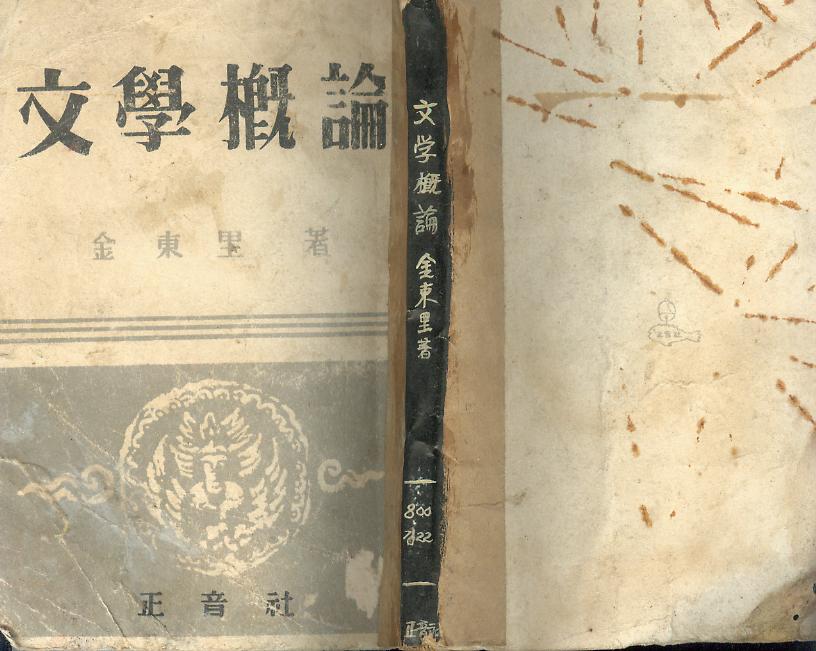 文學概論
金東里 著
正音社
文学概論 金東里著
800
김22
正音社